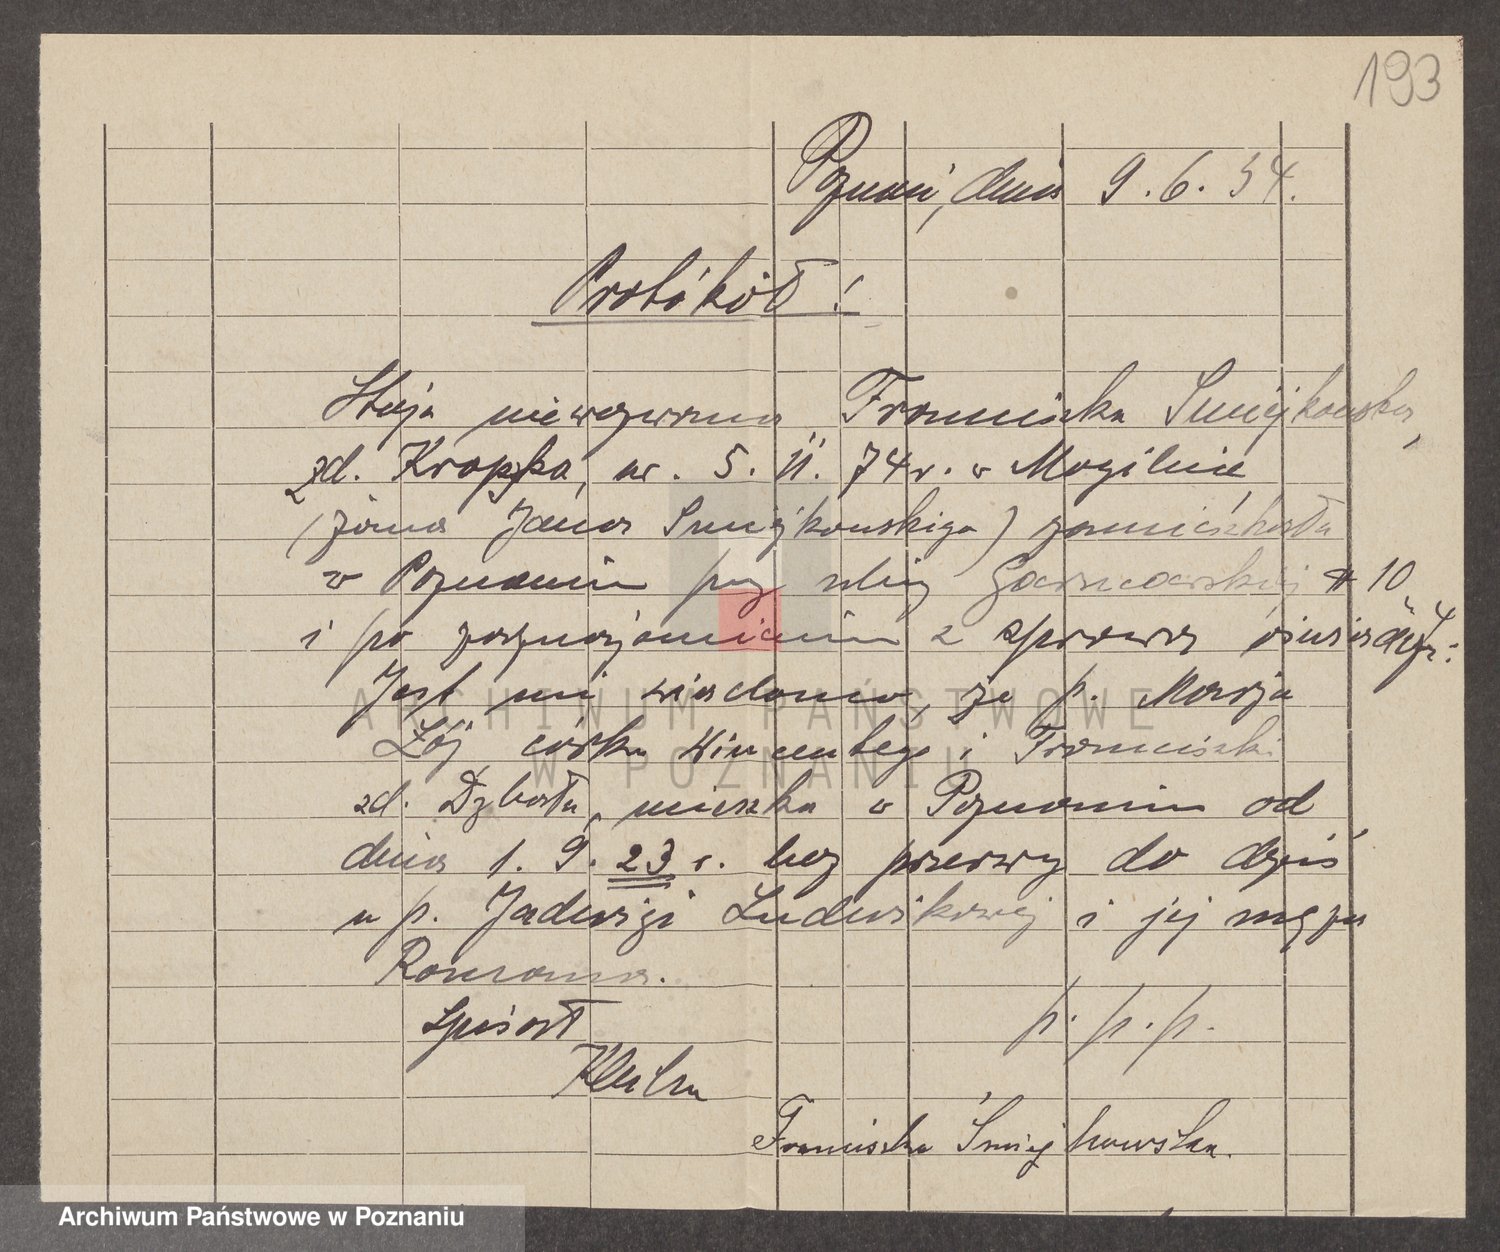 193
Poznań, dnia 9.6.34.
Protókół!
Staje niewezwana Franciszka Śmiejkowska,
zd. Kropka, ur. 5.11.74 r. w Mogilnie
(żona Jana Śmiejkowskiego) zamieszkała
w Poznaniu przy ulicy Garncarskiej 10
i po zaznajomieniu z sprawą oświadcza:
Jest mi wiadomo, że p. Marja
Łój, córka Wincentego i Franciszki
zd. mieszka w Poznaniu od
dnia 1.9.23 r. bez przerwy do dziś
u p. Jadwigi Ludwikowej i jej męża
Romana.
Spisał p.p.p.
Franciszka Śmiejkowska.
ARCHIWUM PAŃSTWOWE
W POZNANIU
Archiwum Państwowe w Poznaniu